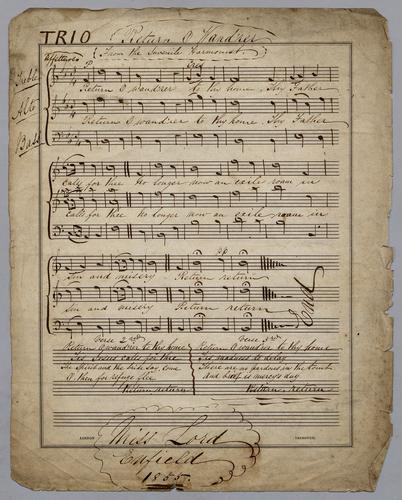 TRIO Return O Wandrer
(From the Juvenile Harmonist)
Affettuoso
P Cres
Treble
Return O wandrer to thy home, Thy Father
Alto
Return O wandrer to thy home, Thy Father
Bass
calls for thee No longer now an exile roam in
calls for thee No longer now an exile roam in
pp
Sin and misery Return return
sin and misery Return return
End
Verse 2nd
Return O wandrer to thy home
Tis Jesus calls for thee
The Spirit and the bride say, come
O then for refuge flee
Return return
Verse 3rd
Return O wandrer to thy home
Tis madness to delay
There are no pardons in the tomb
And brief is mercy's day
Return, return
LONDON
Miss Lord
Enfield
1855.